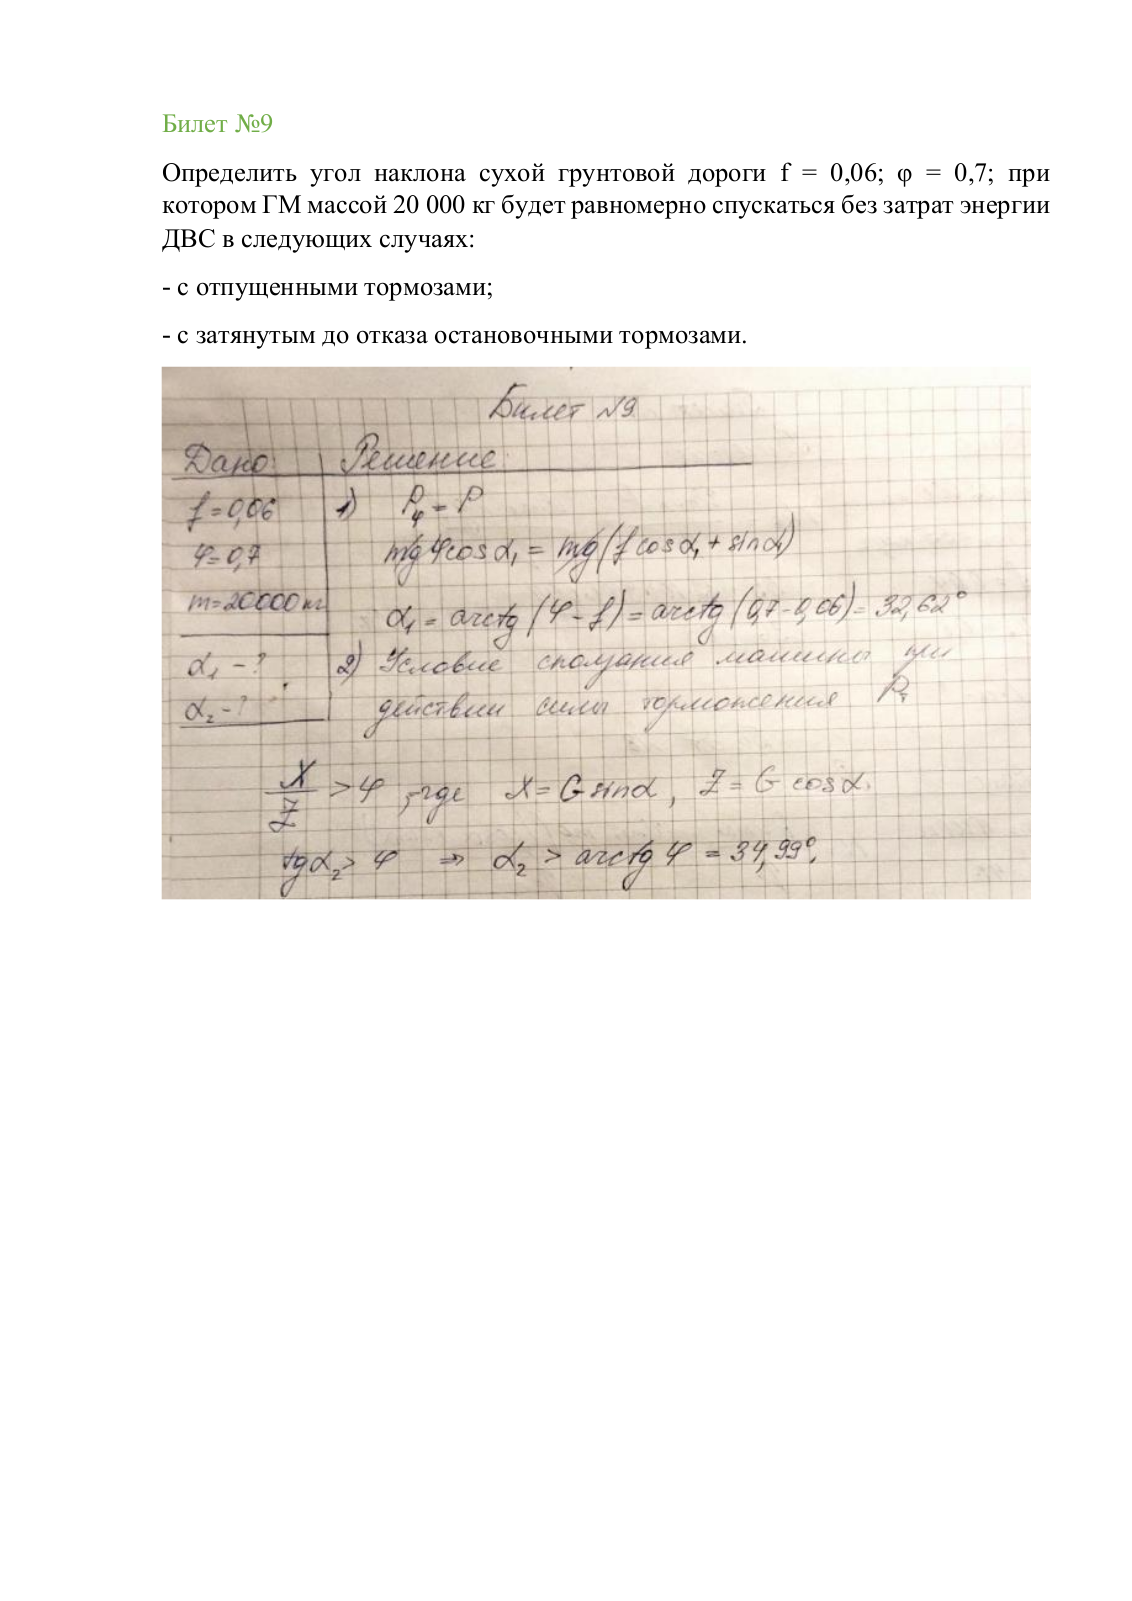 Билет №9
Определить угол наклона сухой грунтовой дороги f = 0,06; φ = 0,7; при
котором ГМ массой 20 000 кг будет равномерно спускаться без затрат энергии
ДВС в следующих случаях:
- с отпущенными тормозами;
- с затянутым до отказа остановочными тормозами.
Билет №9
Дано: Решение:
f = 0,06 1) Pφ = P
φ = 0,7 mgφcosα₁ = mg(fcosα₁ + sinα₁)
m = 20000 кг α₁ = arctg(φ - f) = arctg(0,7 - 0,06) = 32,62°
α₁ - ? 2) Условие сползания машины при
α₂ - ? действии силы торможения Pт
X/Z > φ, где X = G sinα, Z = G cosα.
tgα₂ > φ ⇒ α₂ > arctg φ = 34,99°.